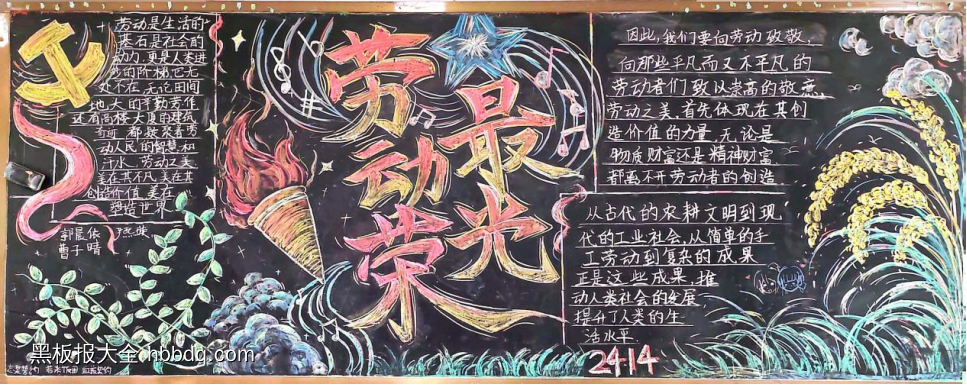 劳动是生活的
基石是社会的
动力,更是人类进
步的阶梯它无
处不在,无论田间
地大的辛勤劳作
还有高楼大厦的建筑
奇迹都凝聚着劳
动人民的智慧和
汗水.劳动之美
美在其不凡,美在其
创造价值,美在
塑造世界
曹子晴
劳动
最光
荣
因此,我们要向劳动致敬.
向那些平凡而又不平凡的
劳动者们致以崇高的敬意,
劳动之美,首先体现在其创
造价值的力量,无论是
物质财富还是精神财富
都离不开劳动者的创造
从古代的农耕文明到现
代的工业社会,从简单的手
工劳动到复杂的成果
正是这些成果,推
动人类社会的发展
提升了人类的生
活水平.
2414
黑板报大全hbbdq.com